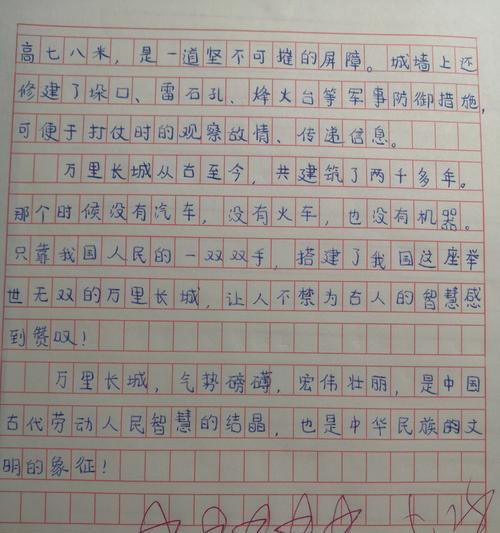 高七八米，是一道坚不可摧的屏障。城墙上还
修建了垛口、雷石孔、烽火台等军事防御措施，
可便于打仗时的观察敌情、传递信息。
万里长城从古至今，共建筑了两千多年。
那个时候没有汽车，没有火车，也没有机器。
只靠我国人民的一双双手，搭建了我国这座举
世无双的万里长城，让人不禁为古人的智慧感
到赞叹！
万里长城，气势磅礴，宏伟壮丽，是中国
古代劳动人民智慧的结晶，也是中华民族的文
明的象征！